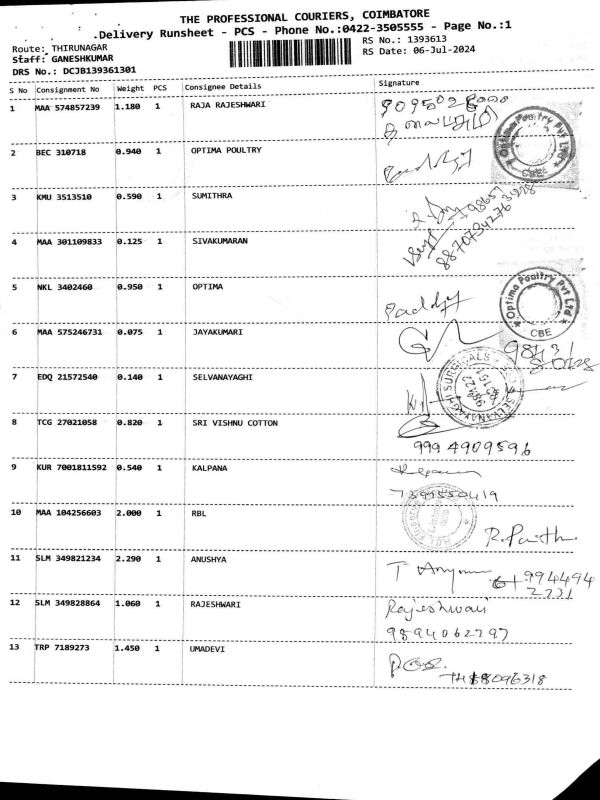 THE PROFESSIONAL COURIERS, COIMBATORE
.Delivery Runsheet - PCS - Phone No.:0422-3505555 - Page No.:1
Route: THIRUNAGAR
Staff: GANESHKUMAR
DRS No.: DCJB139361301
RS No.: 1393613
RS Date: 06-Jul-2024
S No Consignment No Weight PCS Consignee Details Signature
1 MAA 574857239 1.180 1 RAJA RAJESHWARI
Optima Poultry Pvt Ltd
CBE
2 BEC 310718 0.940 1 OPTIMA POULTRY
3 KMU 3513510 0.590 1 SUMITHRA
4 MAA 301109833 0.125 1 SIVAKUMARAN
8870734276
5 NKL 3402460 0.950 1 OPTIMA
Optima Poultry Pvt Ltd
CBE
6 MAA 575246731 0.075 1 JAYAKUMARI
7 EDQ 21572540 0.140 1 SELVANAYAGHI
SELVANAYAGHI SURGICALS
8 TCG 27021058 0.820 1 SRI VISHNU COTTON
9994909596
9 KUR 7001811592 0.540 1 KALPANA
10 MAA 104256603 2.000 1 RBL
11 SLM 349821234 2.290 1 ANUSHYA
994494
2221
12 SLM 349828864 1.060 1 RAJESHWARI
Rajeshwari
9894062297
13 TRP 7189273 1.450 1 UMADEVI